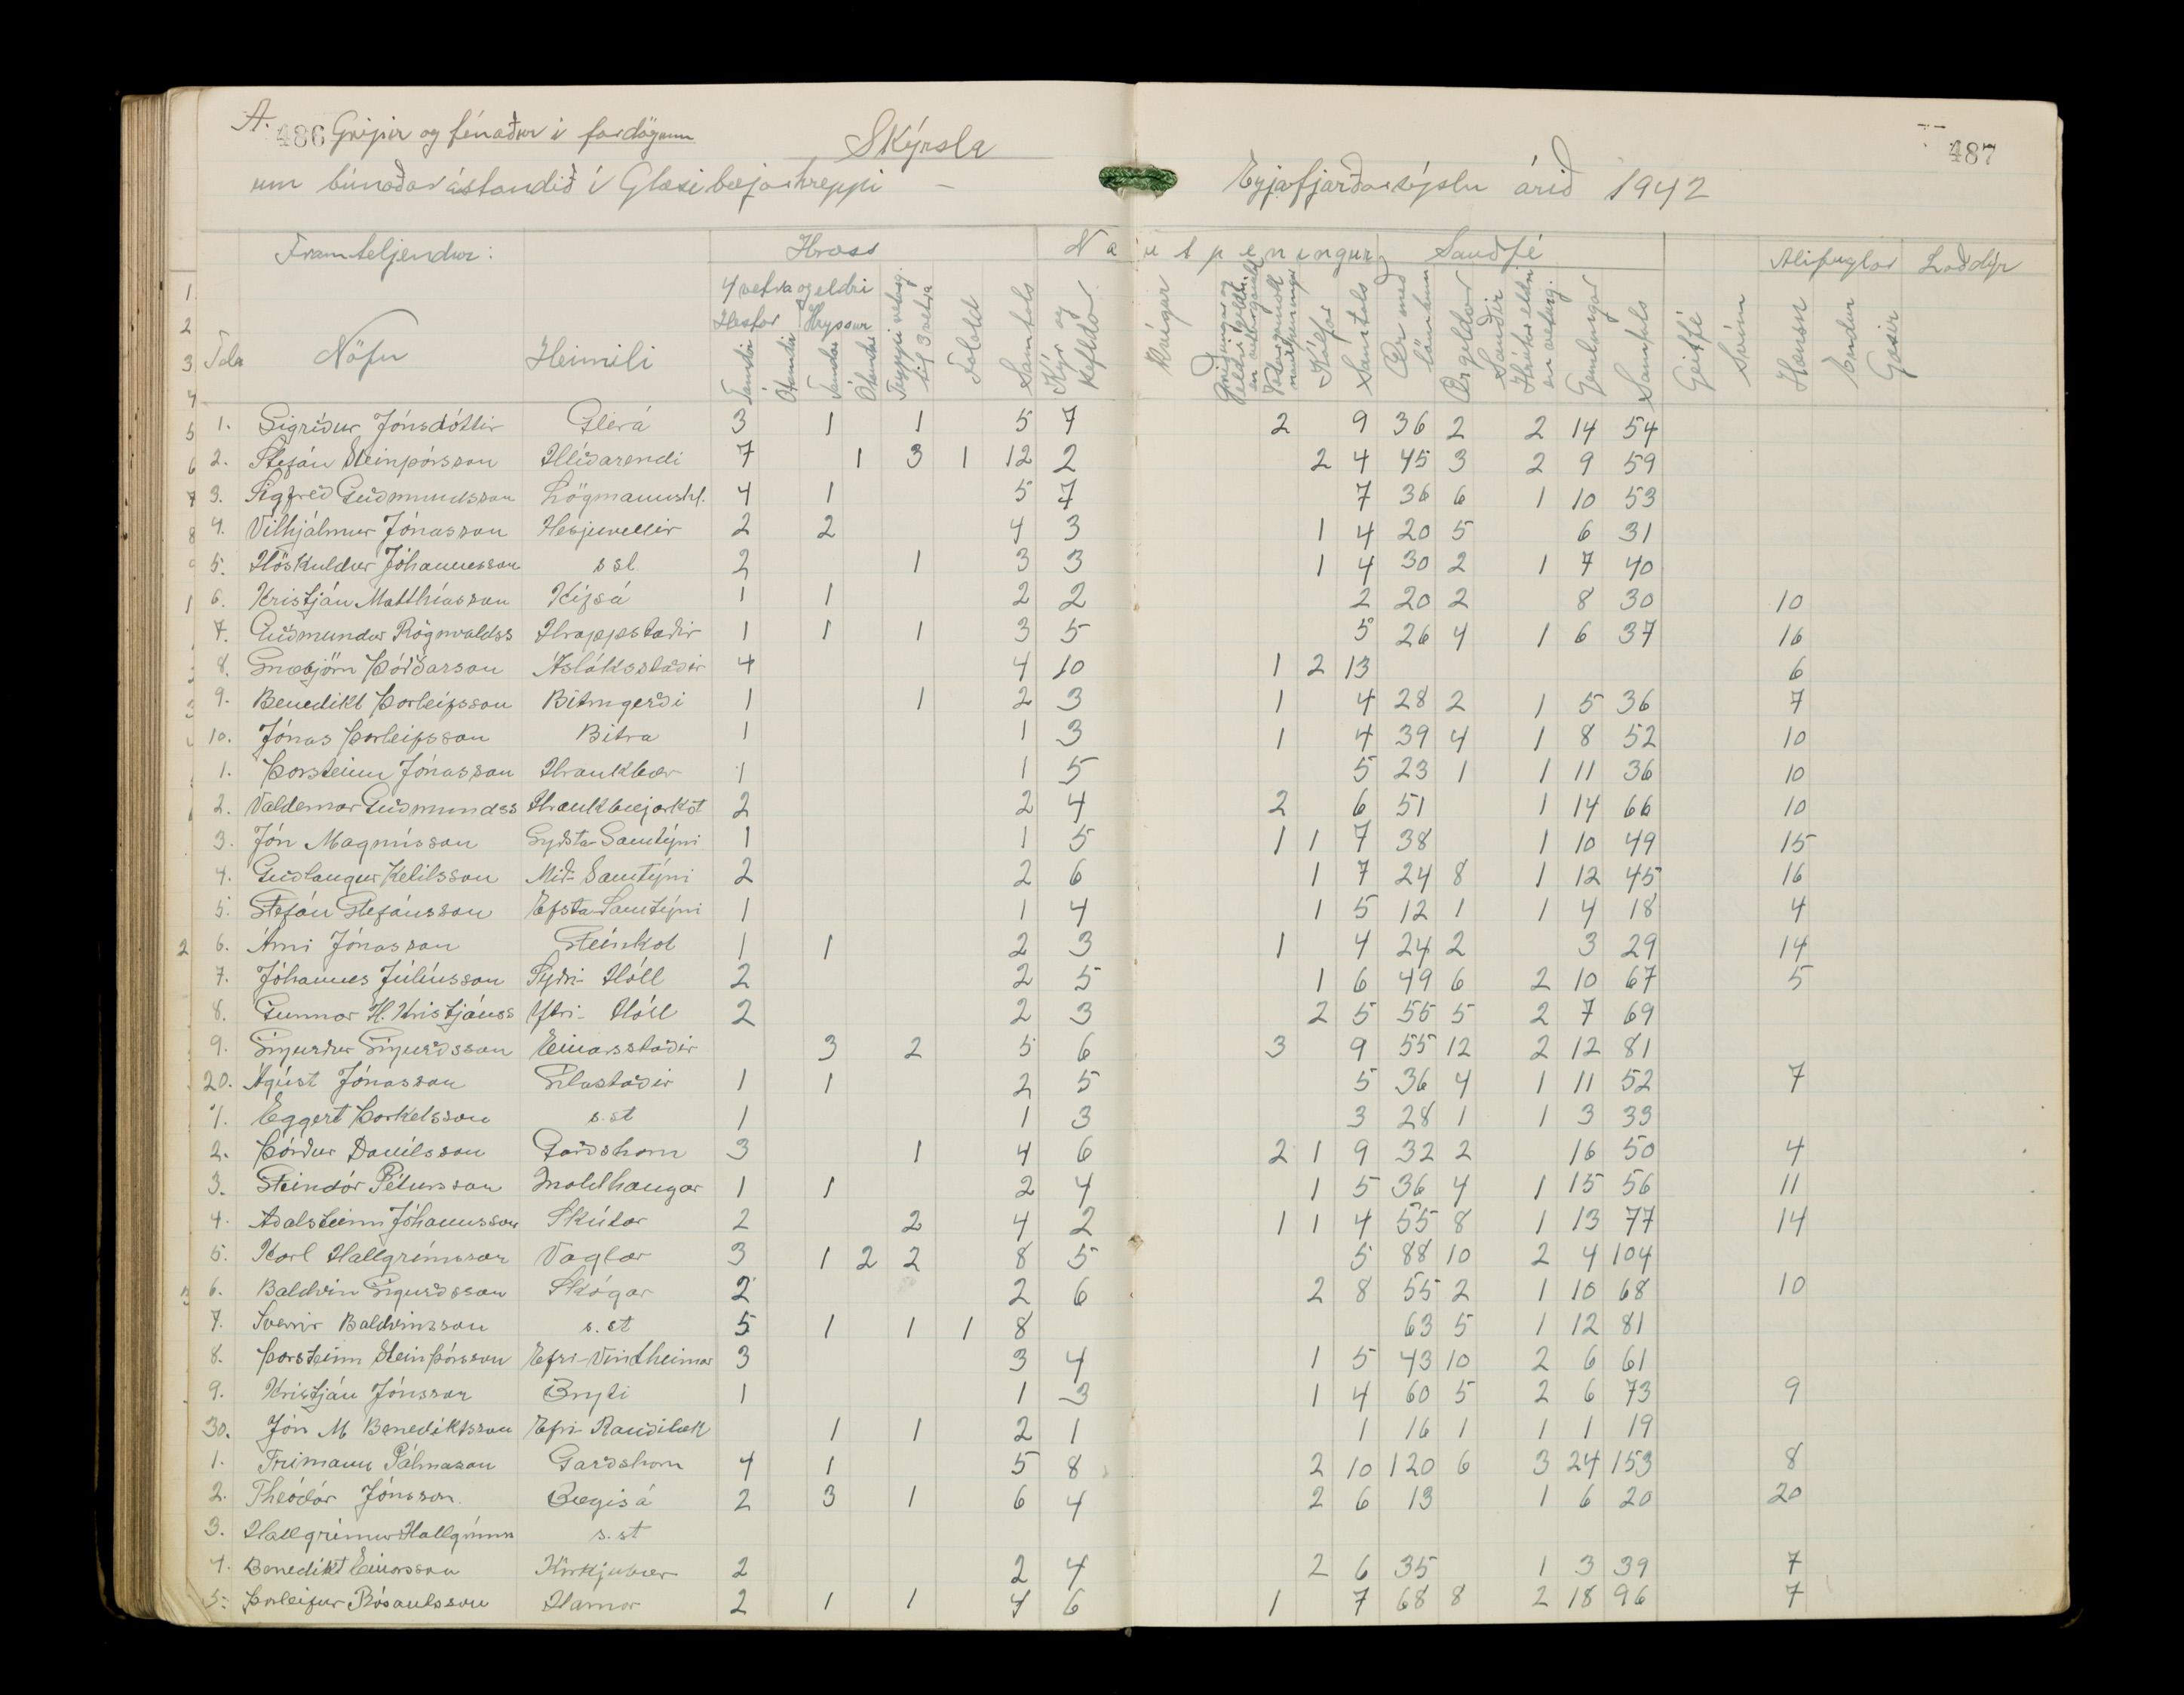 A.
486 Gripir og fénaður í fardögum
Skýrsla
487
um búnaðarástandið í Glæsibæjarhreppi – Eyjafjarðarsýslu árið 1942
Framteljendur: Hross Nautpeningur Sauðfé Alifuglar Loðdýr
4 vetra og eldri
Hestar Hryssur
Tala Nöfn Heimili Tamdir Ótamdir Tamdar Ótamdar Tryppi veturg. til 3 vetra Folöld Samtals Kýr og kefldar Kvígur Veturgamall nautpeningur Kálfar Samtals Ær með lömbum Ær geldar Sauðir Hrútar eldri en veturg. Gemlingar Samtals Geitfé Svín Hænsn Endur Gæsir
1. Sigríður Jónsdóttir Glerá 3 1 1 5 7 2 9 36 2 2 14 54
2. Stefán Steinþórsson Hlíðarendi 7 1 3 1 12 2 2 4 45 3 2 9 59
3. Sigfreð Guðmundsson Lögmannshl. 4 1 5 7 7 36 6 1 10 53
4. Vilhjálmur Jónasson Hesjuvellir 2 2 4 3 1 4 20 5 6 31
5. Höskuldur Jóhannesson s st. 2 1 3 3 1 4 30 2 1 7 40
6. Kristján Matthíasson Kífsá 1 1 2 2 2 20 2 8 30 10
7. Guðmundur Rögnvaldss Hrappstaðir 1 1 1 3 5 5 26 4 1 6 37 16
8. Snæbjörn Þórðarson Ásláksstaðir 4 4 10 1 2 13 6
9. Benedikt Þorleifsson Bitrugerði 1 1 2 3 1 4 28 2 1 5 36 7
10. Jónas Þorleifsson Bitra 1 1 3 1 4 39 4 1 8 52 10
1. Þorsteinn Jónasson Hraukbær 1 1 5 5 23 1 1 11 36 10
2. Valdemar Guðmundss Hraukbæjarkot 2 2 4 2 6 51 1 14 66 10
3. Jón Magnússon Syðsta-Samtýni 1 1 5 1 1 7 38 1 10 49 15
4. Guðlaugur Ketilsson Mið-Samtýni 2 2 6 1 7 24 8 1 12 45 16
5. Stefán Stefánsson Efsta-Samtýni 1 1 4 1 5 12 1 1 4 18 4
6. Árni Jónasson Steinkot 1 1 2 3 1 4 24 2 3 29 14
7. Jóhannes Júlíusson Syðri-Hóll 2 2 5 1 6 49 6 2 10 67 5
8. Gunnar H. Kristjánss Ytri-Hóll 2 2 3 2 5 55 5 2 7 69
9. Sigurður Sigurðsson Einarsstaðir 3 2 5 6 3 9 55 12 2 12 81
20. Ágúst Jónasson Sílastaðir 1 1 2 5 5 36 4 1 11 52 7
1. Eggert Þorkelsson s. st 1 1 3 3 28 1 1 3 33
2. Þórður Daníelsson Garðshorn 3 1 4 6 2 1 9 32 2 16 50 4
3. Steindór Pétursson Moldhaugar 1 1 2 4 1 5 36 4 1 15 56 11
4. Aðalsteinn Jóhannsson Skútar 2 2 4 2 1 1 4 55 8 1 13 77 14
5. Karl Hallgrímsson Vaglar 3 1 2 2 8 5 5 88 10 2 4 104
6. Baldvin Sigurðsson Skógar 2 2 6 2 8 55 2 1 10 68 10
7. Sverrir Baldvinsson s. st 5 1 1 1 8 63 5 1 12 81
8. Þorsteinn Steinþórsson Efri-Vindheimar 3 3 4 1 5 43 10 2 6 61
9. Kristján Jónsson Bryti 1 1 3 1 4 60 5 2 6 73 9
30. Jón M Benediktsson Efri-Rauðilæk 1 1 2 1 1 16 1 1 1 19
1. Frímann Pálmason Garðshorn 4 1 5 8 2 10 120 6 3 24 153 8
2. Theódór Jónsson. Bægisá 2 3 1 6 4 2 6 13 1 6 20 20
3. Hallgrímur Hallgrímss s. st
4. Benedikt Einarsson Kirkjubær 2 2 4 2 6 35 1 3 39 7
5. Þorleifur Rósantsson Hamar 2 1 1 4 6 1 7 68 8 2 18 96 7